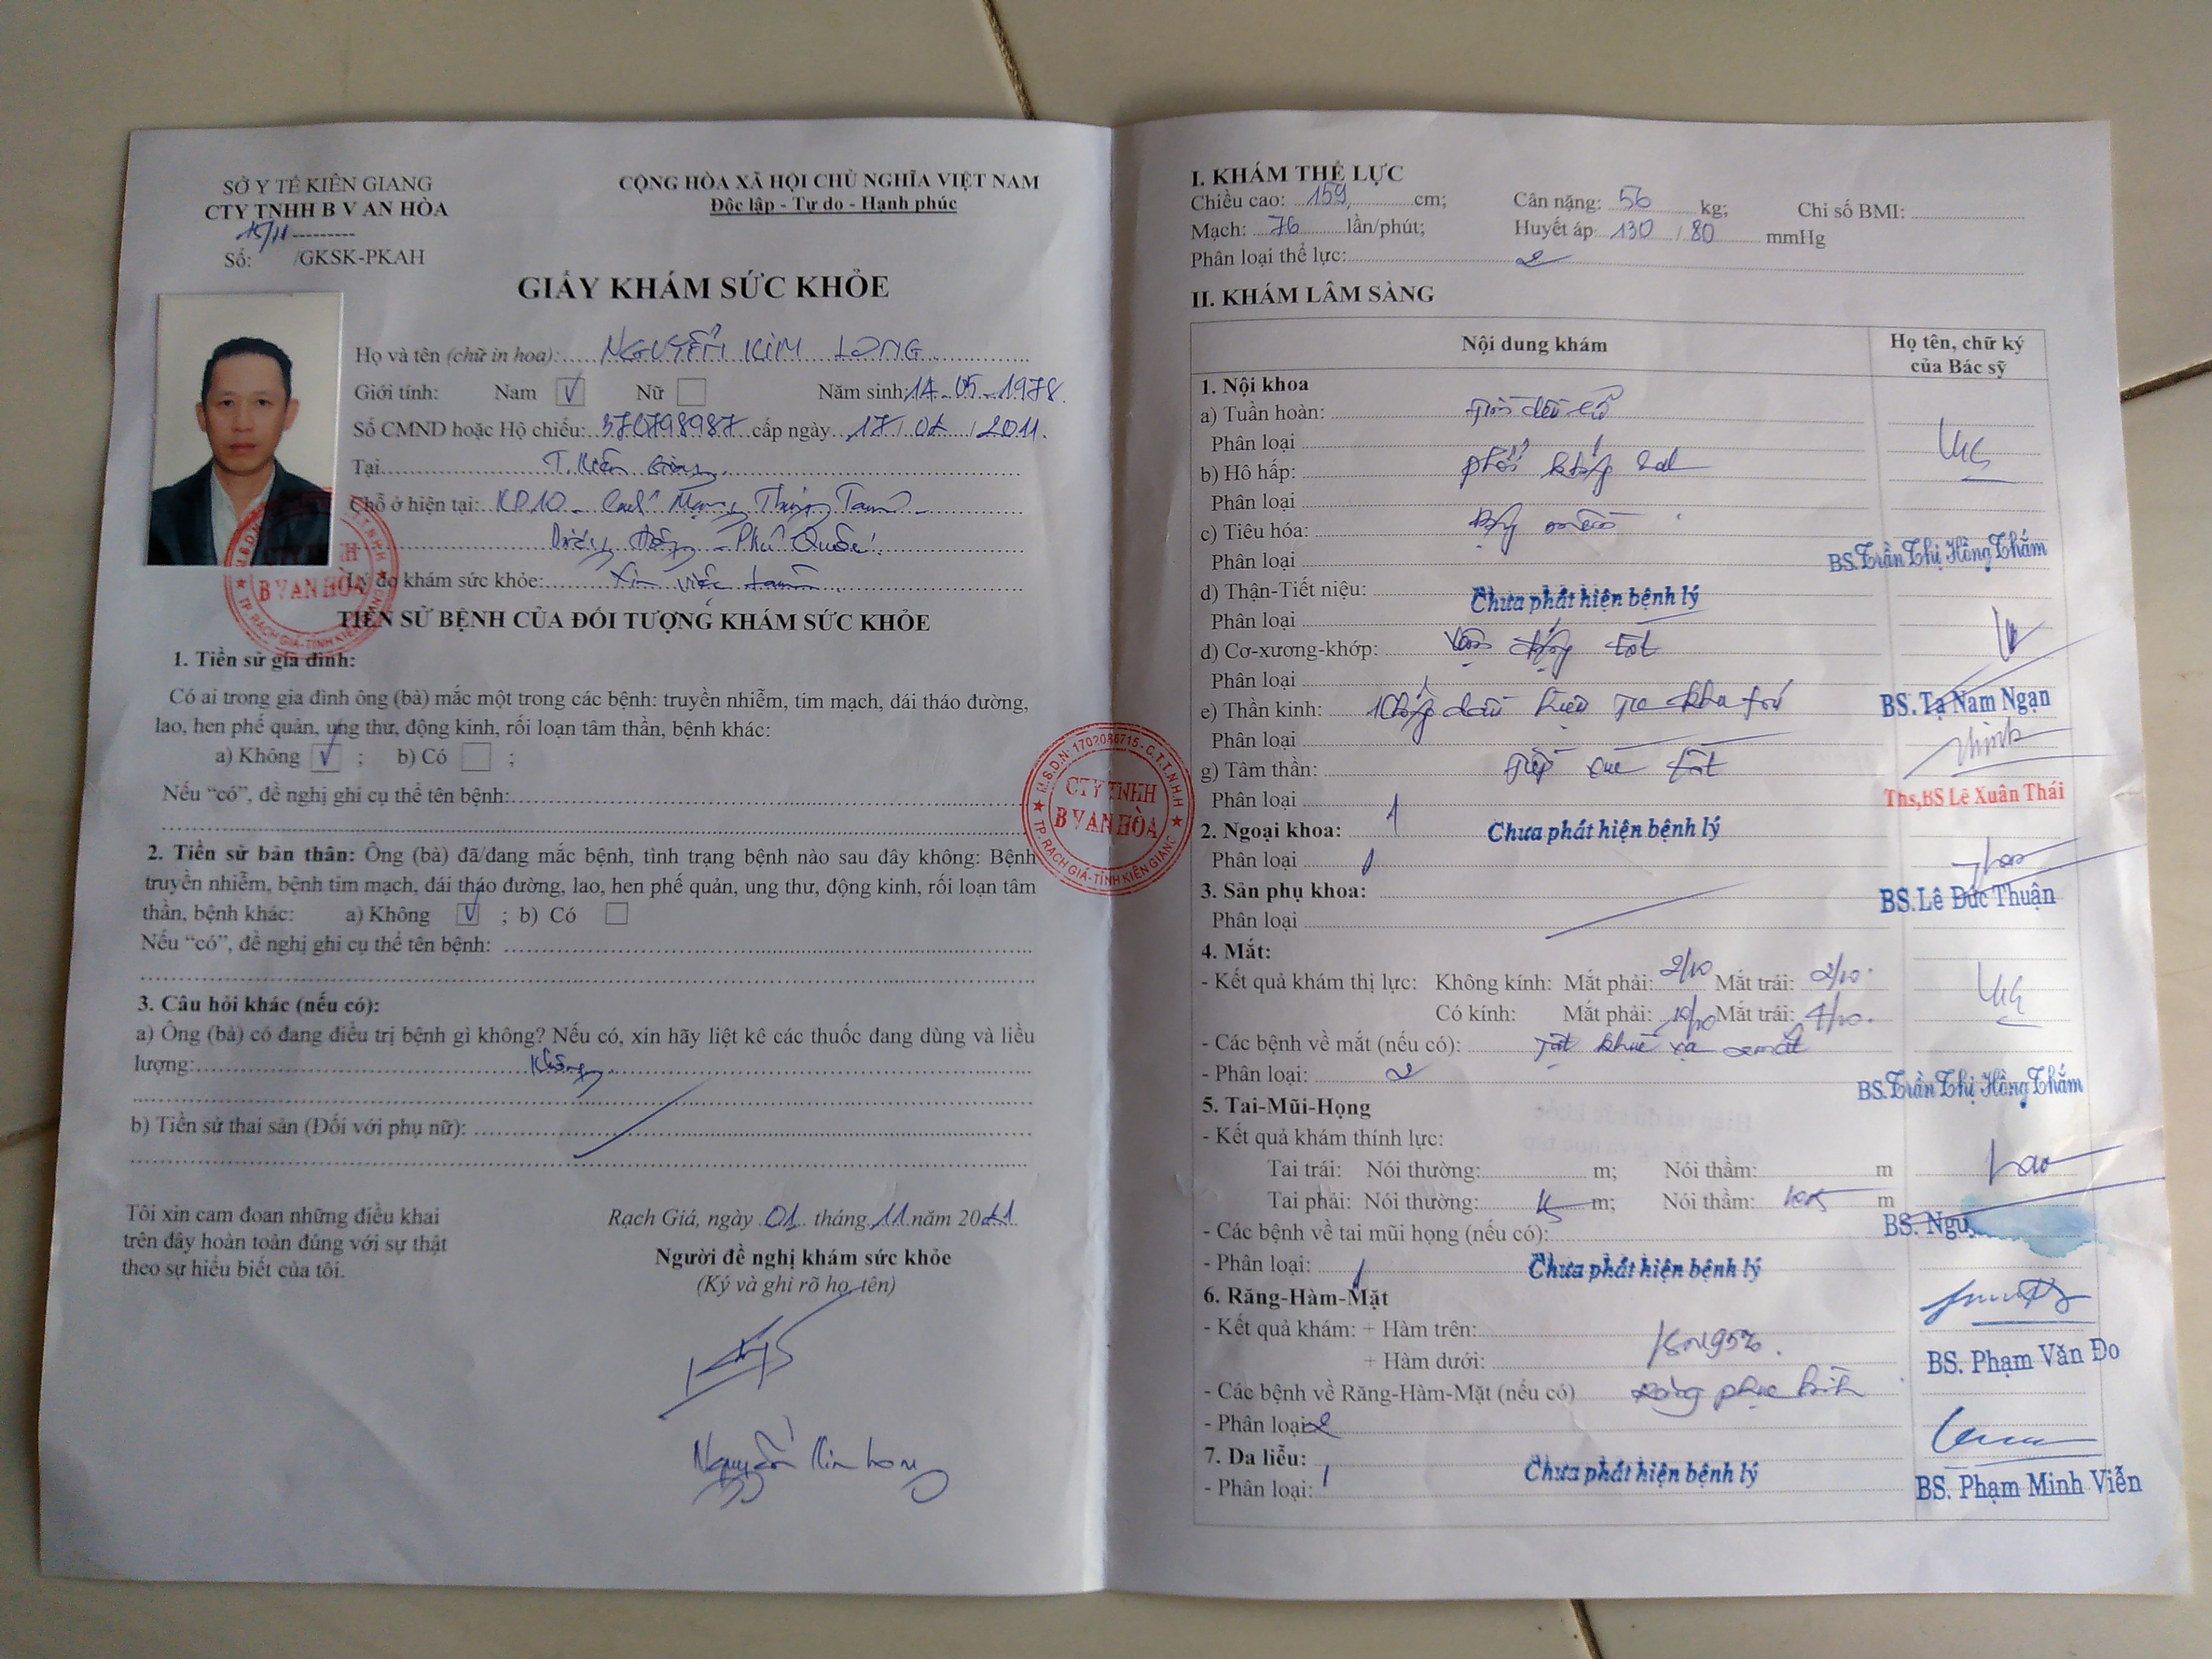 SỞ Y TẾ KIÊN GIANG
CTY TNHH B V AN HÒA
15/11
Số: /GKSK-PKAH
CỘNG HÒA XÃ HỘI CHỦ NGHĨA VIỆT NAM
Độc lập - Tự do - Hạnh phúc
GIẤY KHÁM SỨC KHỎE
Họ và tên (chữ in hoa): NGUYỄN KIM LONG
Giới tính: Nam V Nữ Năm sinh: 14-05-1978
Số CMND hoặc Hộ chiếu: 370798987 cấp ngày 17/ /2011.
Tại T. Kiên Giang
Chỗ ở hiện tại: KP10 - Cách Mạng Tháng Tám -
Dương Đông - Phú Quốc
Lý do khám sức khỏe: Xin việc làm
TIỀN SỬ BỆNH CỦA ĐỐI TƯỢNG KHÁM SỨC KHỎE
1. Tiền sử gia đình:
Có ai trong gia đình ông (bà) mắc một trong các bệnh: truyền nhiễm, tim mạch, đái tháo đường,
lao, hen phế quản, ung thư, động kinh, rối loạn tâm thần, bệnh khác:
a) Không V ; b) Có ;
Nếu “có”, đề nghị ghi cụ thể tên bệnh:
2. Tiền sử bản thân: Ông (bà) đã/đang mắc bệnh, tình trạng bệnh nào sau đây không: Bệnh
truyền nhiễm, bệnh tim mạch, đái tháo đường, lao, hen phế quản, ung thư, động kinh, rối loạn tâm
thần, bệnh khác: a) Không V ; b) Có
Nếu “có”, đề nghị ghi cụ thể tên bệnh:
3. Câu hỏi khác (nếu có):
a) Ông (bà) có đang điều trị bệnh gì không? Nếu có, xin hãy liệt kê các thuốc đang dùng và liều
lượng: Không
b) Tiền sử thai sản (Đối với phụ nữ):
Tôi xin cam đoan những điều khai
trên đây hoàn toàn đúng với sự thật
theo sự hiểu biết của tôi.
Rạch Giá, ngày 01 tháng 11 năm 2021
Người đề nghị khám sức khỏe
(Ký và ghi rõ họ, tên)
Nguyễn Kim Long
M.S.D.N: 1702086715 - C.T.T.N.H.H
CTY TNHH
B V AN HÒA
TP. RẠCH GIÁ - TỈNH KIÊN GIANG
I. KHÁM THỂ LỰC
Chiều cao: 159 cm; Cân nặng: 56 kg; Chỉ số BMI:
Mạch: 76 lần/phút; Huyết áp 130 / 80 mmHg
Phân loại thể lực: 2
II. KHÁM LÂM SÀNG
Nội dung khám
Họ tên, chữ ký
của Bác sỹ
1. Nội khoa
a) Tuần hoàn: đều rõ
Phân loại
b) Hô hấp: phổi không ral
Phân loại
c) Tiêu hóa: Bụng mềm
Phân loại
BS. Trần Thị Hồng Thắm
d) Thận-Tiết niệu: Chưa phát hiện bệnh lý
Phân loại
đ) Cơ-xương-khớp: Vận động tốt
Phân loại
e) Thần kinh: Không dấu hiệu TK khu trú
BS. Tạ Nam Ngạn
Phân loại
g) Tâm thần: Tiếp xúc tốt
Phân loại 1
Ths,BS Lê Xuân Thái
2. Ngoại khoa: Chưa phát hiện bệnh lý
Phân loại 1
3. Sản phụ khoa:
BS. Lê Đức Thuận
Phân loại
4. Mắt:
- Kết quả khám thị lực: Không kính: Mắt phải: 2/10 Mắt trái: 2/10
Có kính: Mắt phải: 10/10 Mắt trái: 9/10.
- Các bệnh về mắt (nếu có): Tật khúc xạ 2 mắt
- Phân loại: 2
BS. Trần Thị Hồng Thắm
5. Tai-Mũi-Họng
- Kết quả khám thính lực:
Tai trái: Nói thường: m; Nói thầm: m
Tai phải: Nói thường: m; Nói thầm: m
BS.
- Các bệnh về tai mũi họng (nếu có):
- Phân loại: 1 Chưa phát hiện bệnh lý
6. Răng-Hàm-Mặt
- Kết quả khám: + Hàm trên:
+ Hàm dưới:
BS. Phạm Văn Đo
- Các bệnh về Răng-Hàm-Mặt (nếu có) Răng phục hình
- Phân loại 2
7. Da liễu: Chưa phát hiện bệnh lý
- Phân loại: 1
BS. Phạm Minh Viễn